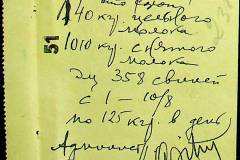 140 кг. цельного
молока
1010 кг. снятого
молока
для 358 свиней
с 1 — 10/8
по 125 кг. в день
51